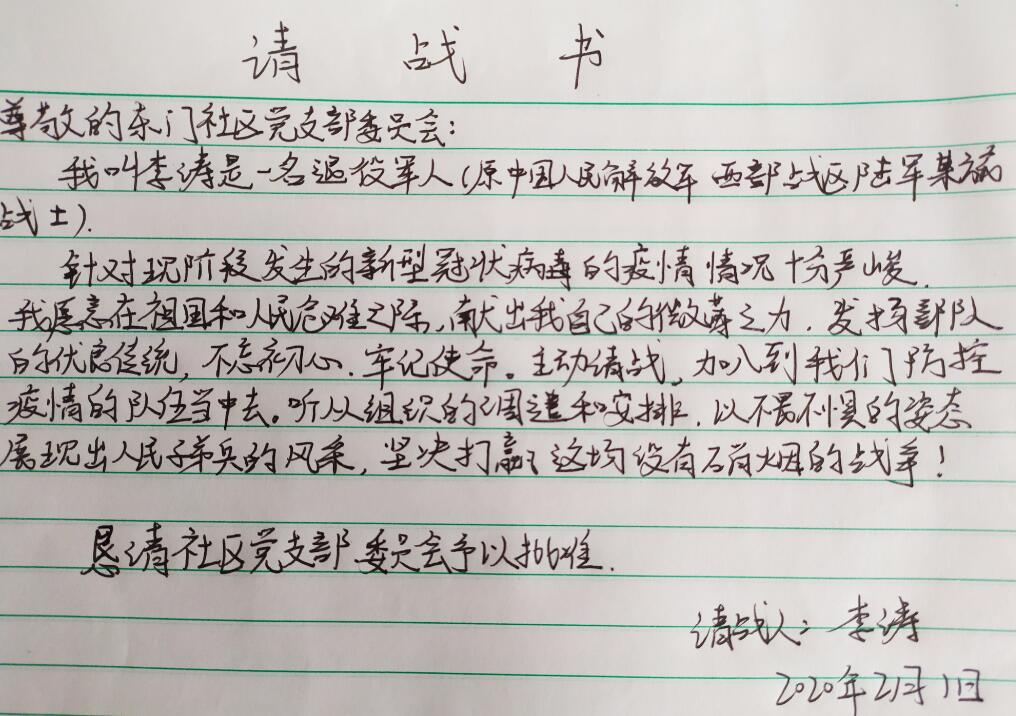 请战书
尊敬的东门社区党支部委员会:
我叫李涛是一名退役军人(原中国人民解放军西部战区陆军某部
战士).
针对现阶段发生的新型冠状病毒的疫情情况十分严峻.
我愿意在祖国和人民危难之际,献出我自己的微薄之力.发扬部队
的优良传统,不忘初心.牢记使命。主动请战,加入到我们防控
疫情的队伍当中去。听从组织的调遣和安排.以不畏不惧的姿态
展现出人民子弟兵的风采,坚决打赢这场没有硝烟的战争!
恳请社区党支部委员会予以批准.
请战人:李涛
2020年2月1日